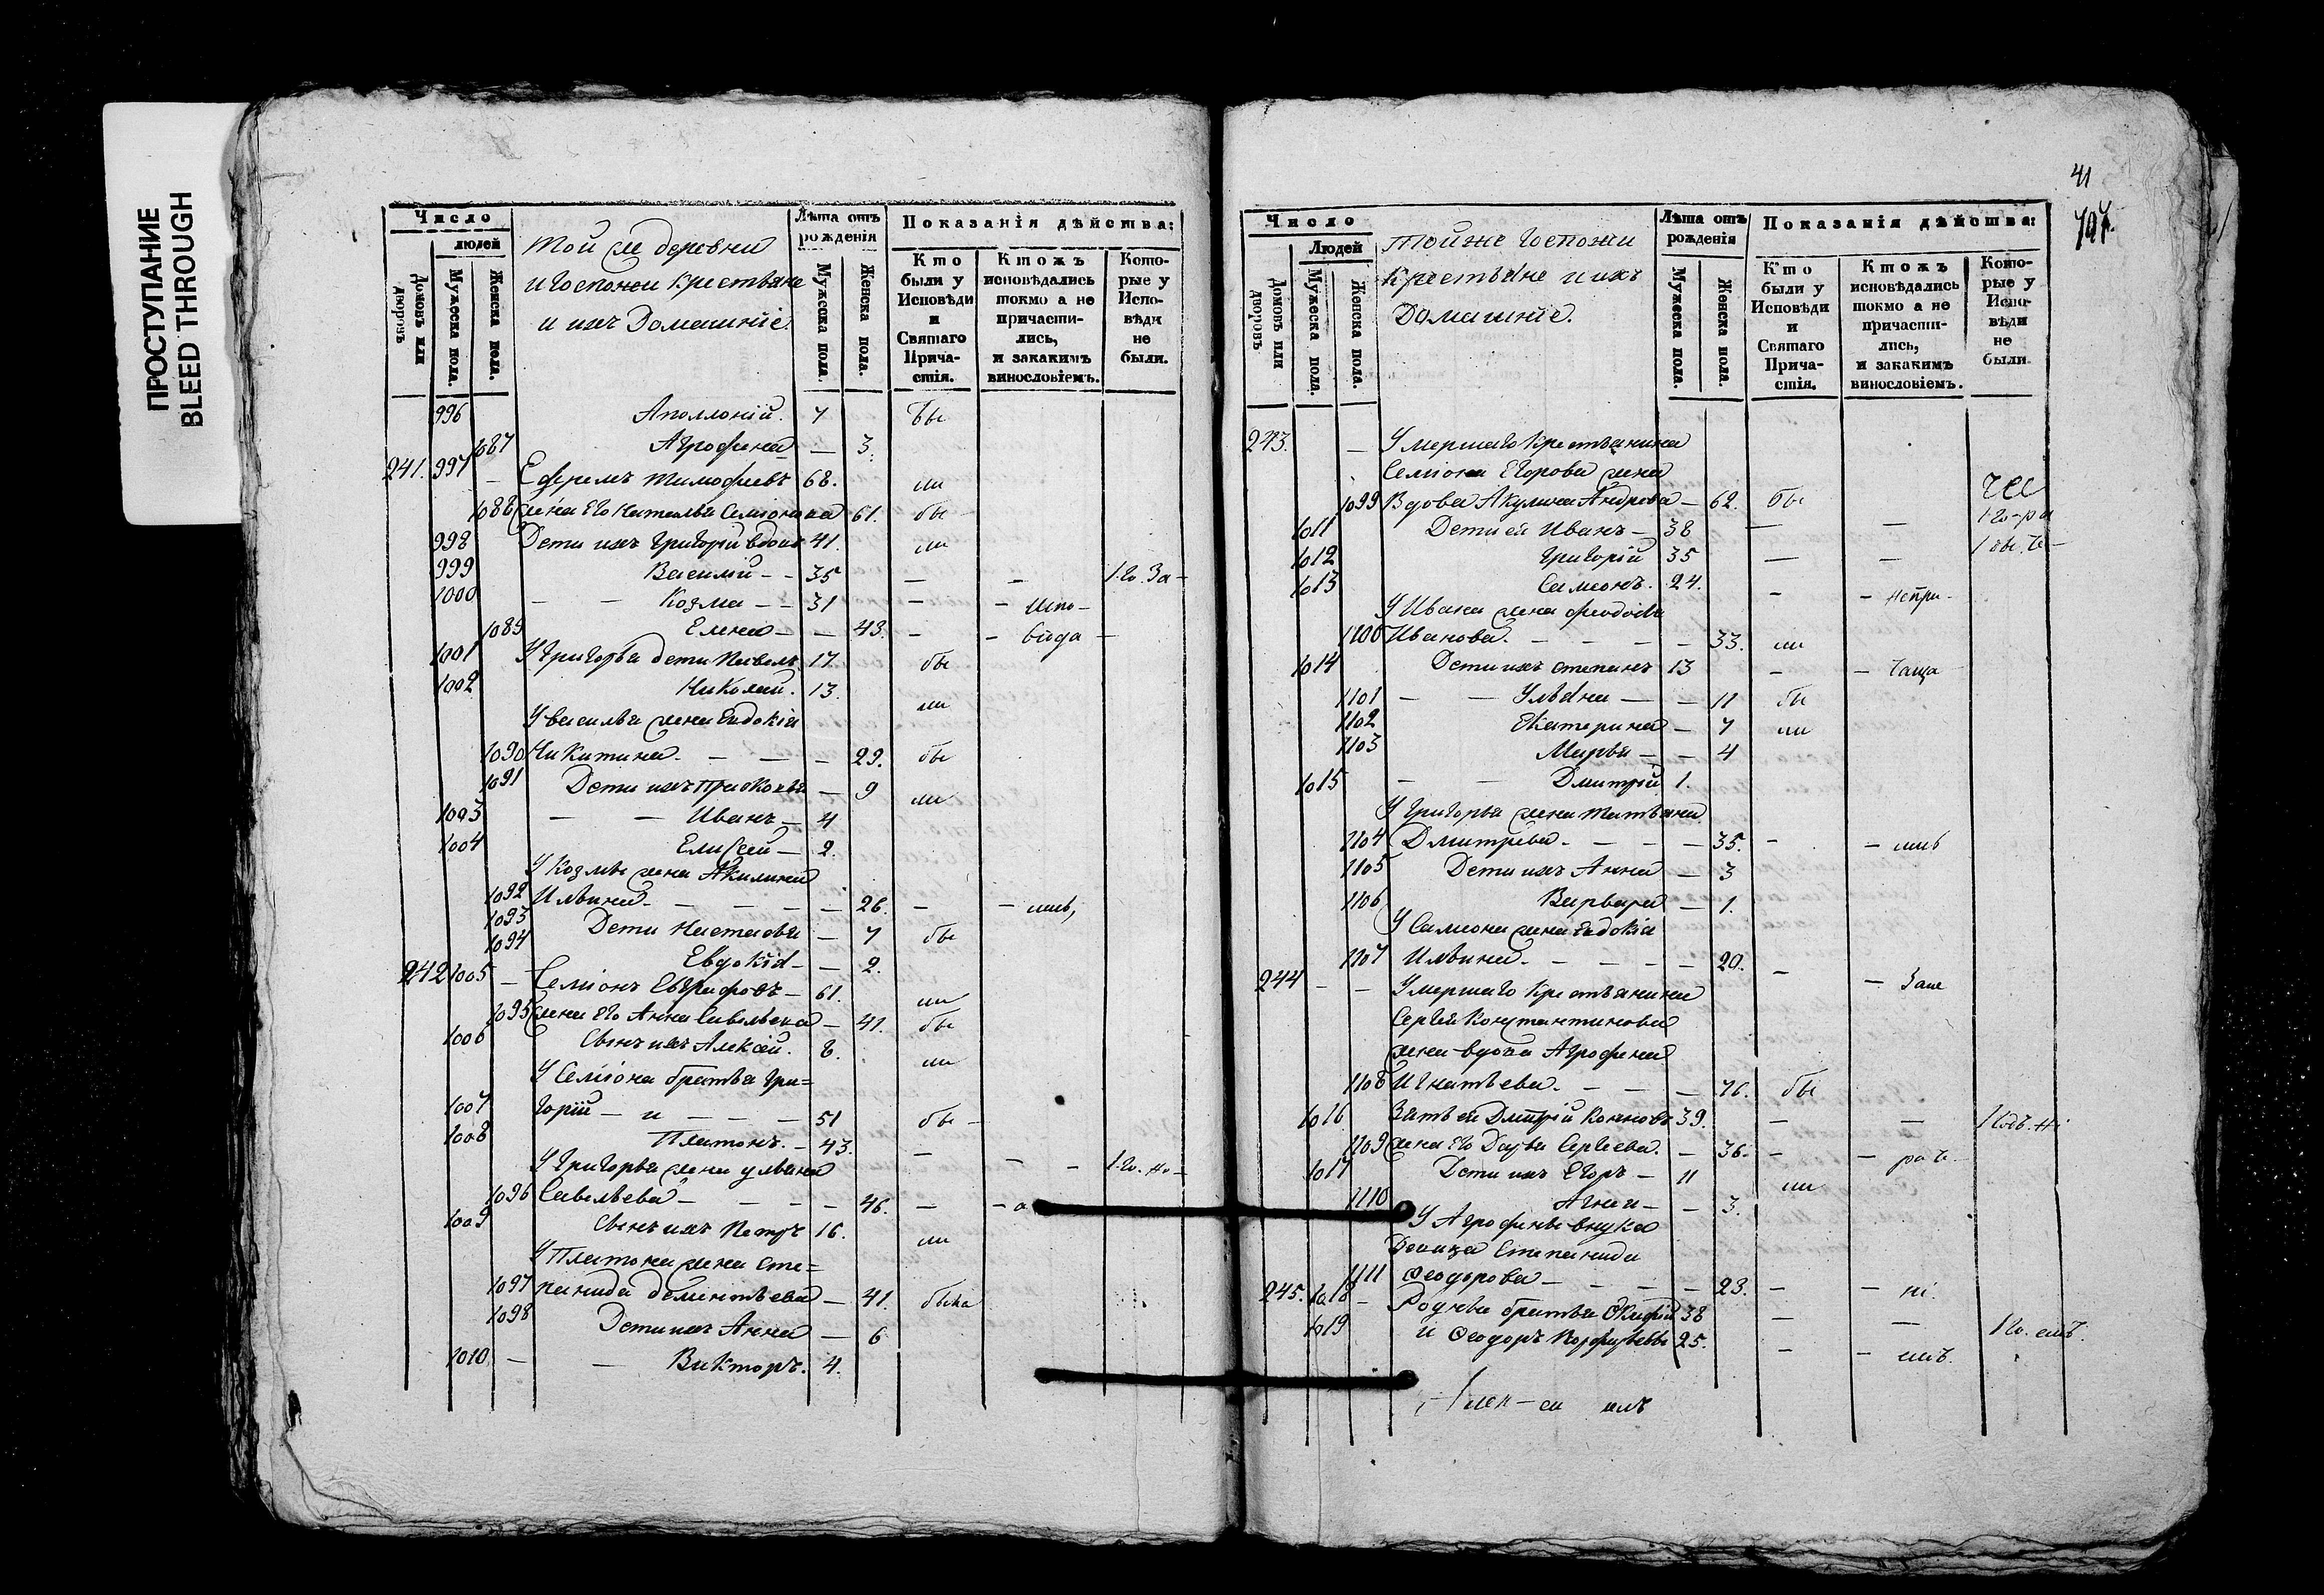 ПРОСТУПАНИЕ
BLEED THROUGH
Число
людей
Домовъ или дворовъ
Мужеска пола.
Женска пола.
Той же деревни
и Госпожи крестьяне
и ихъ Домашніе.
Лѣта отъ рожденія
Мужеска пола.
Женска пола.
Показанія дѣйства:
Кто были у Исповѣди и Святаго Причастія.
Ктожъ исповѣдались токмо а не причастились, и закакимъ винословіемъ.
Которые у Исповѣди не были.
996 Аполлоній. 7 бы
1087 Агрофена — 3.
241. 997 — Ефремъ Тимофѣевъ 68. ли
1088 жена Его Наталья Семіонова 61. бы
998 Дети ихъ Григорій вдовъ 41. ли
999 Василій — — 35 — — 1. го. За —
1000 — — Козма — — 31 — — испо —
1089 Елена — — 43. — —
1001 У Григорья дети Павелъ 17. бы
1002 Николай. 13. ли
У василья жена Евдокія
1090 Никитина. — — — 29. бы
1091 Дети ихъ Прасковья — 9 ли
1003 — — Иванъ — 4
1004 Елисей — 2.
У Козмы жена Акилина
1092 Ильина. — — — — 26. — —
1093 Дети Настасья — 7 бы
1094 Евдокія — — 2.
242 1005 — Семіонъ Евграфовъ — 61. ли
1095 жена Его Анна Савельева — 41. бы
1006 Сынъ ихъ Алексѣй. 8. ли
У Семіона братья Гри=
1007 горій — и — — — 51 бы —
1008 Платонъ. — 43. — — — 1. го. но —
У Григорья жена ульяна
1096 Савельева — — — — 46. — — а
1009 Сынъ ихъ Петръ 16. ли
У Платона жена Сте=
1097 панида дементьева — 41. была
1098 Дети ихъ Анна — 6
1010 — — Викторъ. 4.
41
Число
Людей
Домовъ или дворовъ
Мужеска пола.
Женска пола.
Тойже Госпожи
крестьяне и ихъ
Домашніе.
Лѣта отъ рожденія
Мужеска пола.
Женска пола.
Показанія дѣйства:
Кто были у Исповѣди и Святаго Причастія.
Ктожъ исповѣдались токмо а не причастились, и закакимъ винословіемъ.
Которые у Исповѣди не были.
243. — Умершаго крестьянина
Семіона Егорова жена
1099 Вдова Акулина Андреева — 62. бы
1011 Дети ей Иванъ — 38 — —
1012 Григорій 35 — —
1013 Самсонъ. 24. — — непри —
У Ивана жена феодосья
1100 Иванова. — — — — 33. ли
1014 Дети ихъ степанъ 13 — —
1101 — — Ульяна — — 11 бы
1102 Екатерина — 7 ли
1103 Марья — — 4
1015 — — Дмитрій 1.
У Григорья жена Татьяна
1104 Дмитрева. — — — 35. — —
1105 Дети ихъ Анна — 3
1106 Варвара — 1.
У Самсона жена Евдокія
1107 Ильина. — — — — 20. — —
244 — — Умершаго крестьянина
Сергея Константинова
жена вдова Агрофена
1108 Игнатьева. — — — 76. бы
1016 Зять ей Дмитрій Кононовъ 39. — —
1109 жена Его Дарья Сергеева. — 36. — —
1017 Дети ихъ Егоръ — 11 ли
1110 Агния — — 3.
У Агрофены внука
Девица Степанида
1111 Феодорова — — — — 23. — —
245. 1018 — Родные братья 38 — —
1019 и Феодоръ 25. — —